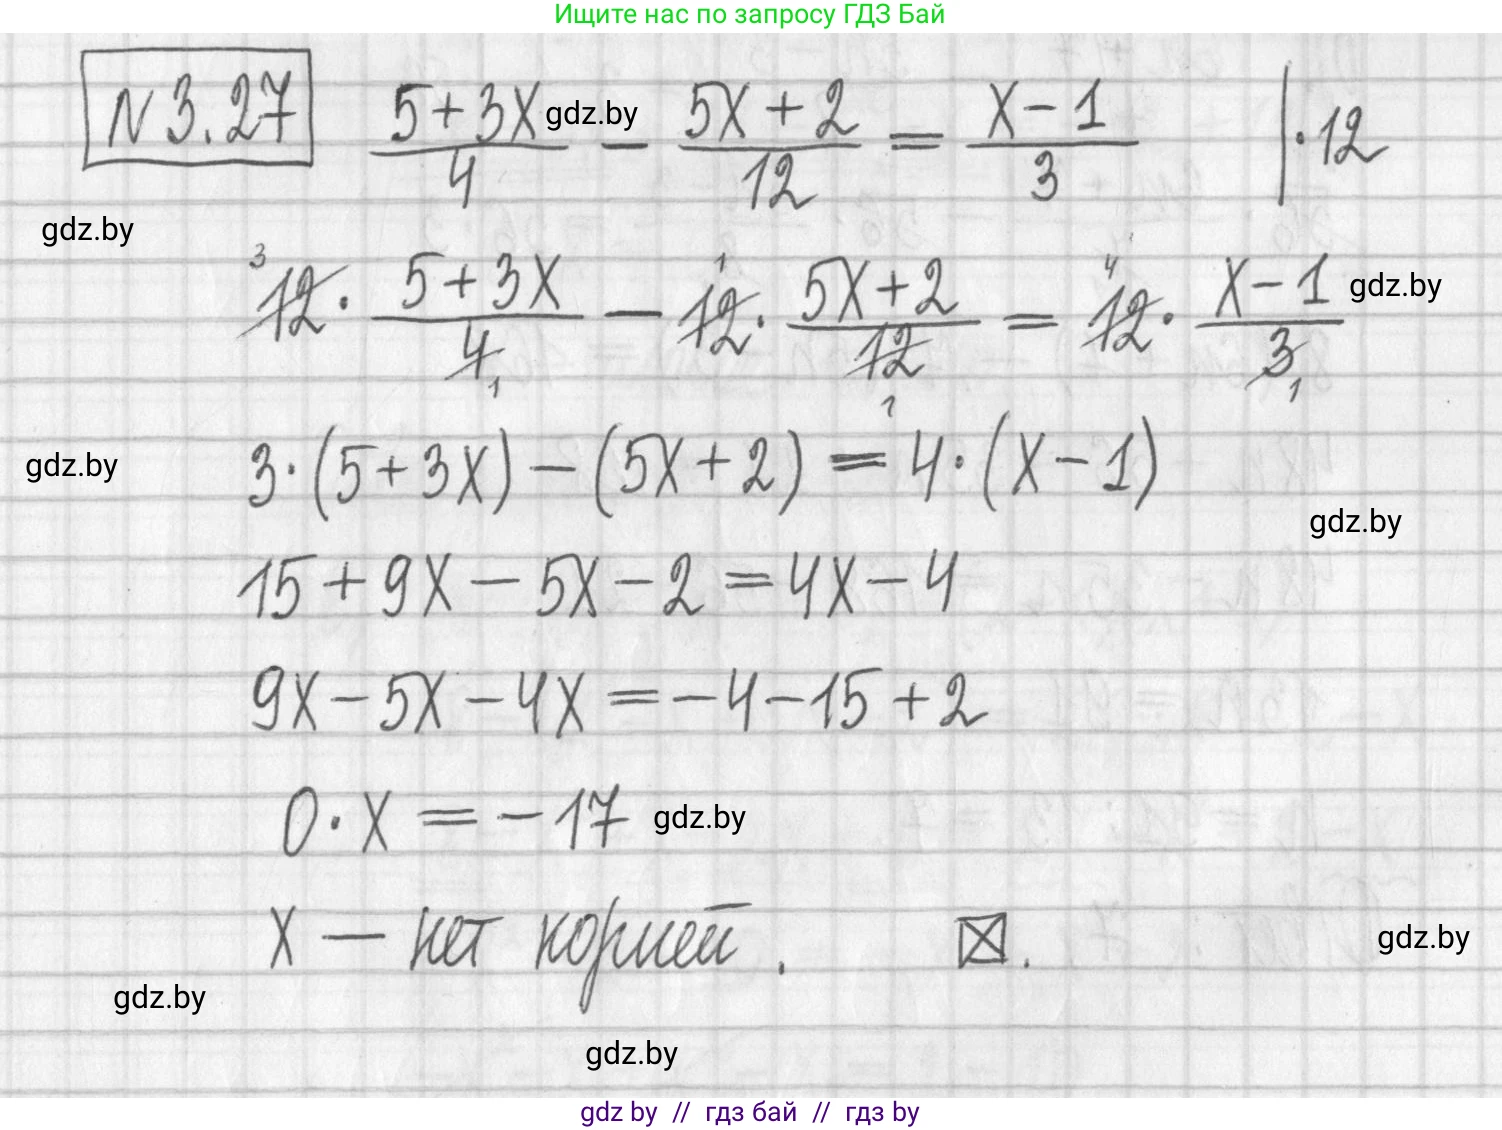 Ищите нас по запросу ГДЗ Бай
N 3.27 (5+3x)/4 - (5x+2)/12 = (x-1)/3 | ·12
gdz.by
gdz.by
3 1 4
12 · (5+3x)/4 - 12 · (5x+2)/12 = 12 · (x-1)/3
gdz.by
1 1 1
3·(5+3x) - (5x+2) = 4·(x-1)
gdz.by
gdz.by
15+9x-5x-2=4x-4
9x-5x-4x=-4-15+2
0·x=-17
gdz.by
x - нет корней.
gdz.by
gdz.by
gdz.by
gdz by // гдз бай // гдз by